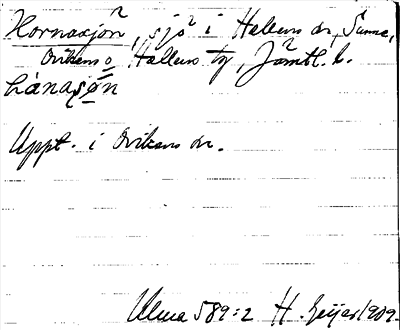 Hornasjön, sjö i Hallens sn, Sunne,
Ovikens o Hallens tg, Jämtl. l.
hánasǿn
Uppt. i Ovikens sn.
Ulma 589:2 H. Geijer 1909